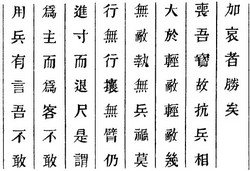 用兵有言吾不敢
爲主而爲客不敢
進寸而退尺是謂
行無行攘無臂仍
無敵執無兵禍莫
大於輕敵輕敵幾
喪吾寶故抗兵相
加哀者勝矣